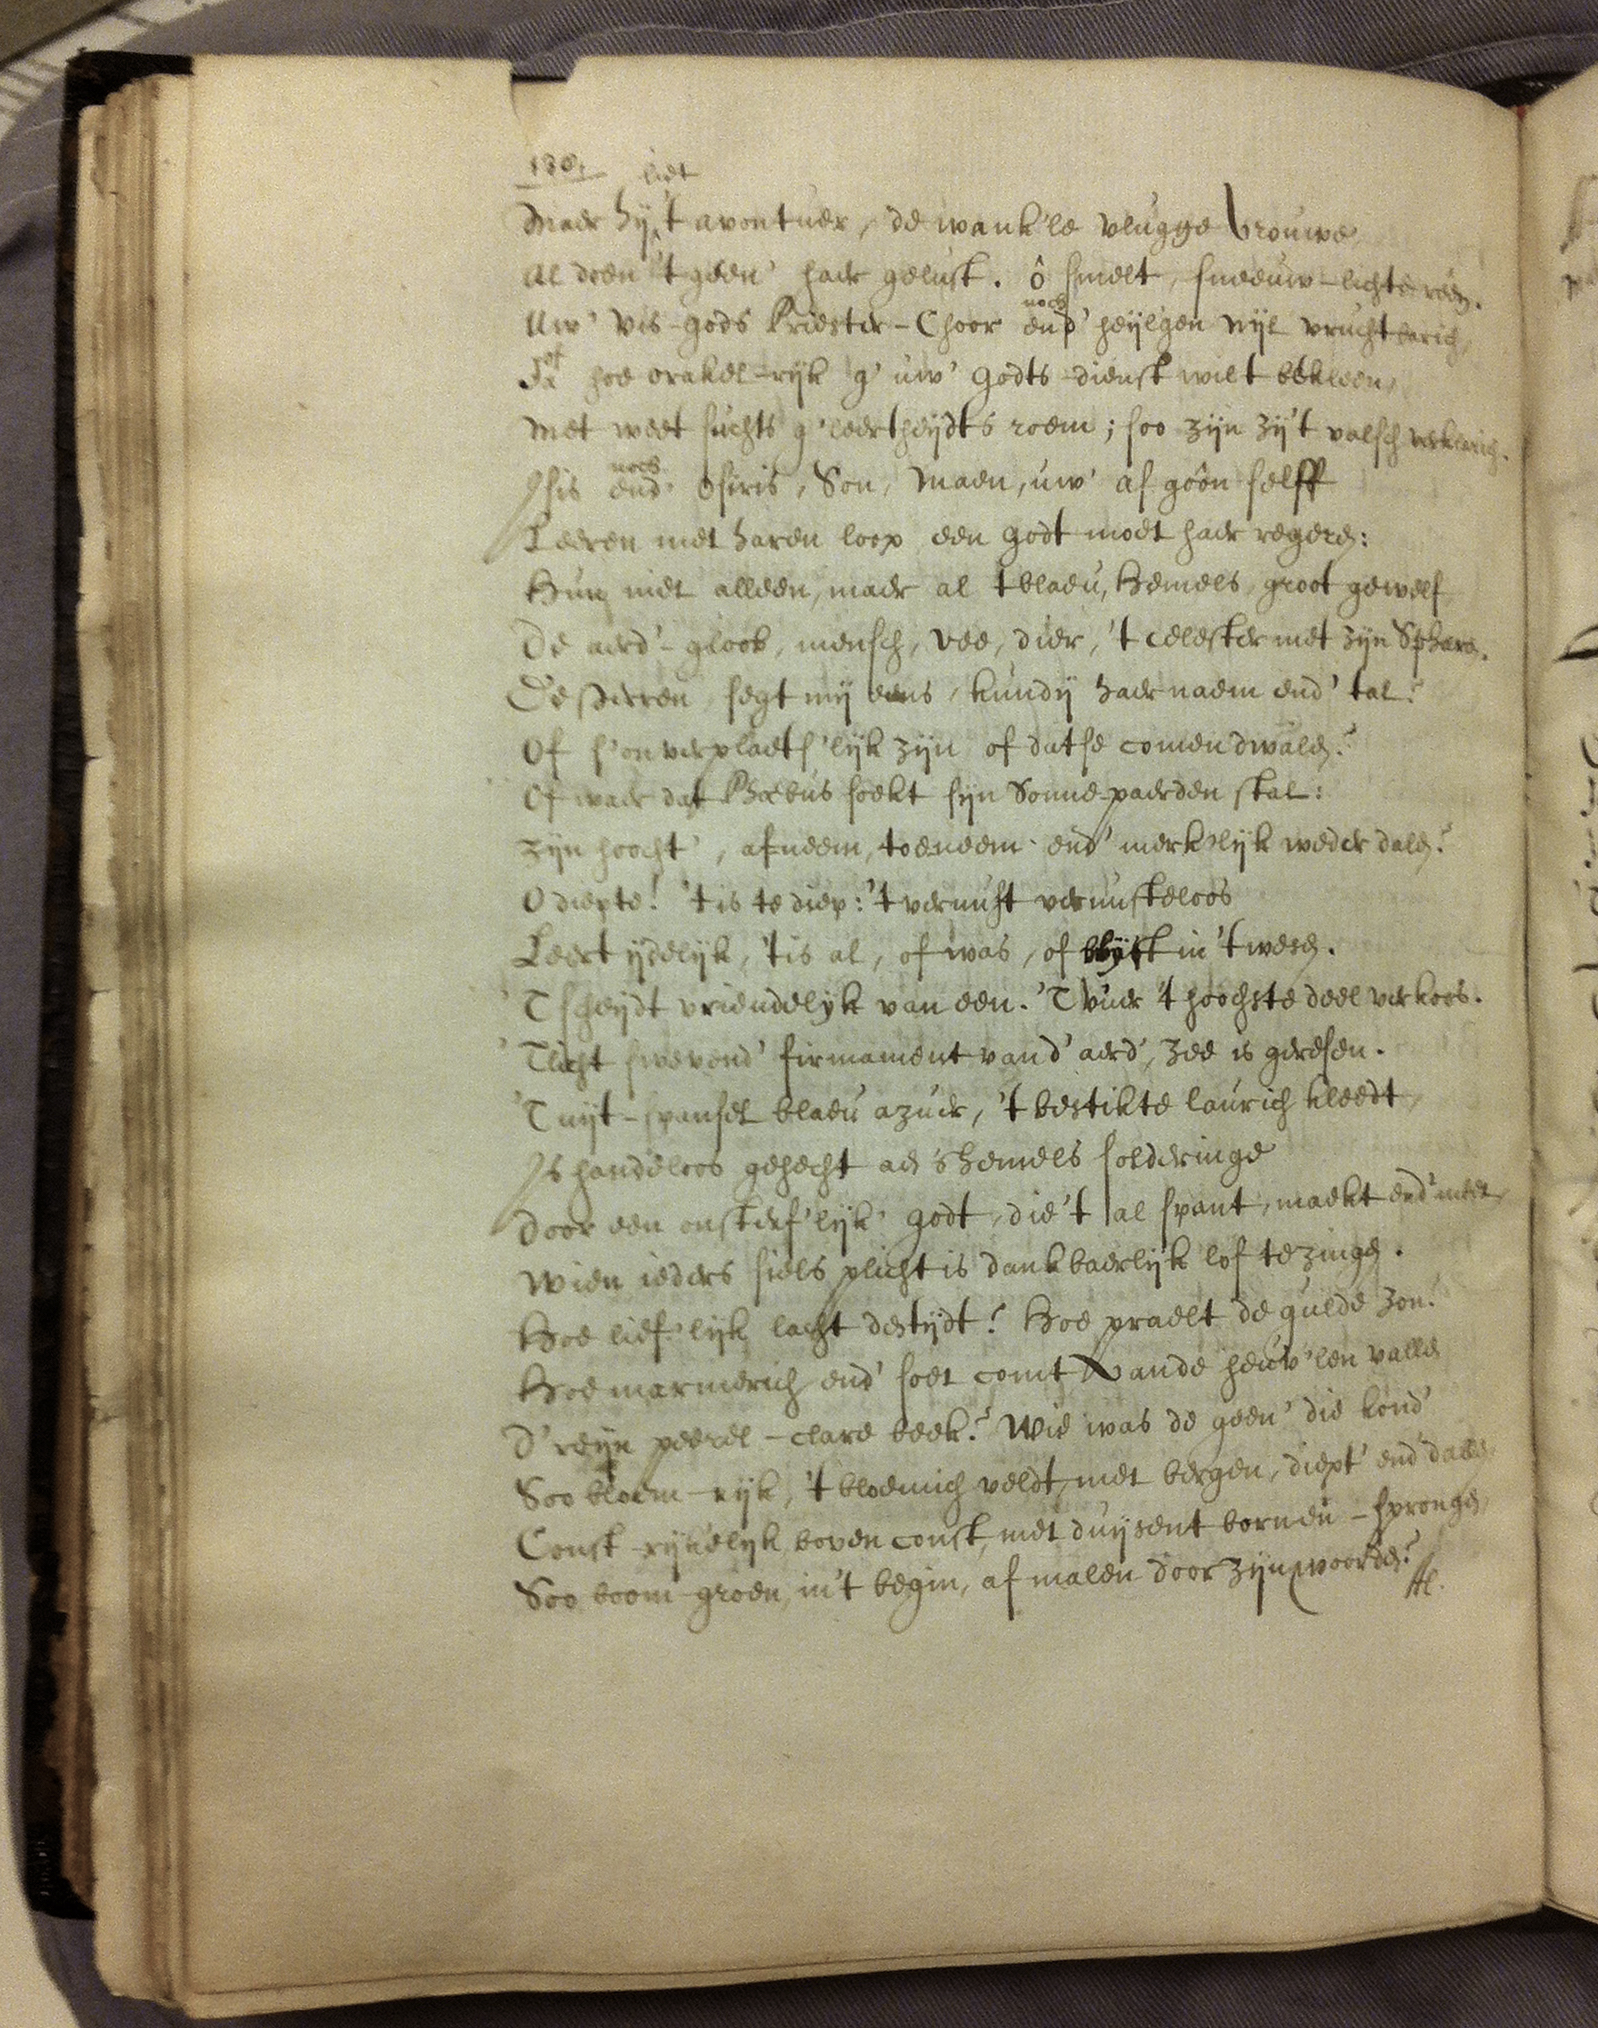 130.
liet
Maer hy 't avontuer, de wank'le vlugge Vrouwe
Al doen 't geen' haer gelust. ô smelt, sneeuw-lichte reen.
Uw' vis-gods Priester-Choor end' heijlgen Nijl vruchtbarich,
noch
of
Ja hoe orakel-ryk g' uw' Godts-dienst wilt bekleen,
Met weet suchts g'leertheijdts roem; soo zijn zij't valsch verklarich.
noch
Isis end' Osiris, Son, Maen, uw' af goôn selff
Leeren met haren loop een Godt moet haer regeren:
Hun niet alleen, maer al 't blaeu, Hemels, groot gewelf
De aerd'-gloob, mensch, vee, dier, 't celester met zijn Spharen.
De sterren segt mij eens, kundij haer naem end' tal?
Of s'onverplaets'lijk zijn of datse comen dwalen?
Of waer dat Phœbus soekt sijn Sonne-paerden stal:
Zijn hoocht', afneem, toeneem end' merk'lijk weder dalen?
O diepte! 't is te diep: 't vernuft vernufteloos
Leert ijdelijk, 't is al, of was, of blijft in 't wesen.
'T scheijdt vriendelyk van een. 'T vuer 't hoochste deel verkoos.
'Tlicht swevend' firmament van d' aerd', zee is geresen.
'T uijt-spansel blaeu azuer, 't bestikte laurich kleedt,
Is handeloos gehecht aen 's hemels solderinge
Door een onsterf'lijk Godt, die 't al spant, maekt end' meet,
Wien ieders siels plicht is dankbaerlijk lof te zingen.
Hoe lief'lijk lacht den tijdt? Hoe praelt de gulde zon?
Hoe marmerich end' soet comt vande heuv'len vallen
D' reijn peerel-clare beek? Wie was de geen' die kond'
Soo bloem-ryk, 't bloemich veldt, met bergen, diept' end' dallen
Const-rijkelijk boven const, met duijsent bornen-sprongen,
Soo boom-groen, in't begin, af malen door zijn woorden?